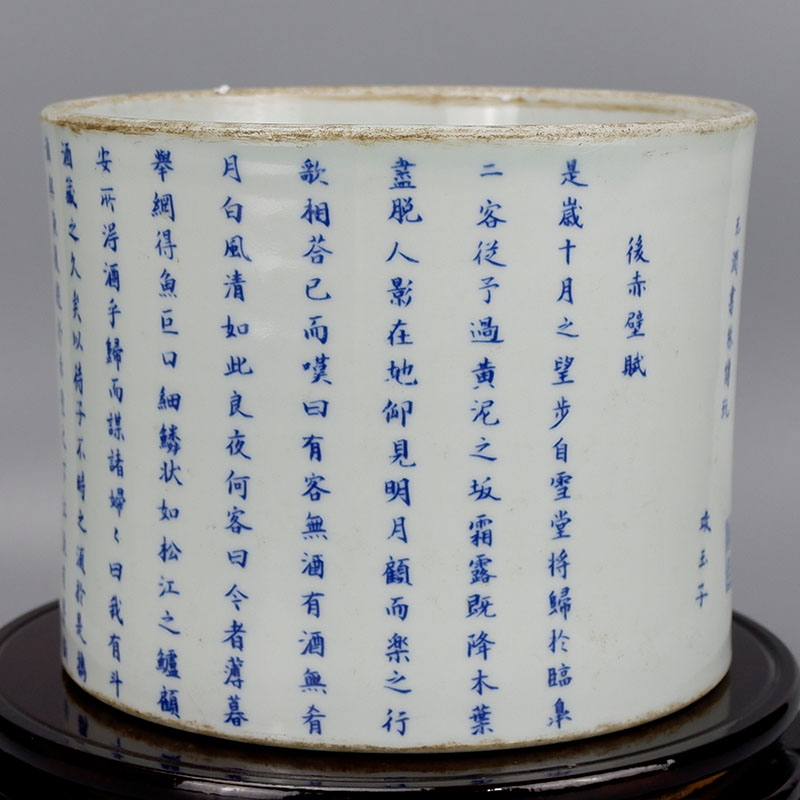 後赤壁賦
是歲十月之望步自雪堂將歸於臨臯
二客從予過黃泥之坂霜露既降木葉
盡脫人影在地仰見明月顧而楽之行
歌相荅已而嘆曰有客無酒有酒無肴
月白風清如此良夜何客曰今者薄暮
舉網得魚巨口細鱗狀如松江之鱸顧
安所得酒乎歸而謀諸婦〻曰我有斗
酒藏之久矣以待子不時之須於是攜
玉子